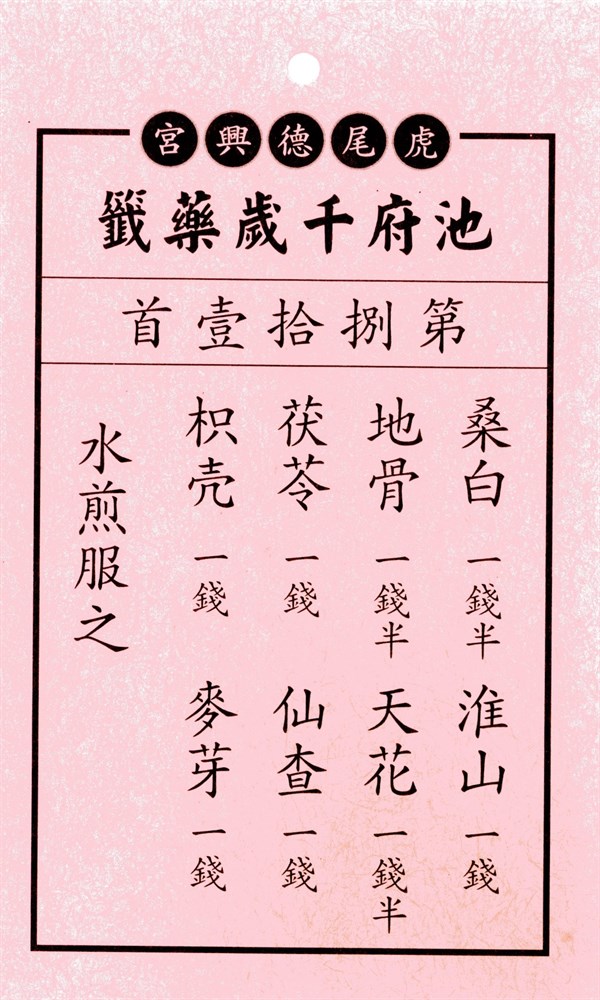 虎尾德興宮
池府千歲藥籤
第捌拾壹首
桑白 一錢半 淮山 一錢
地骨 一錢半 天花 一錢半
茯苓 一錢 仙查 一錢
枳壳 一錢 麥芽 一錢
水煎服之